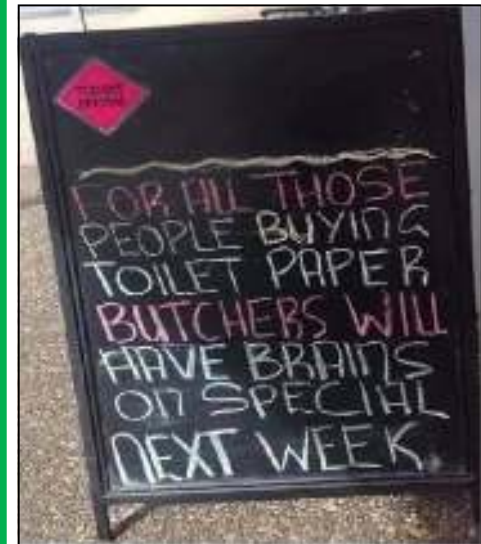 FOR ALL THOSE
PEOPLE BUYING
TOILET PAPER
BUTCHERS WILL
HAVE BRAINS
ON SPECIAL
NEXT WEEK.